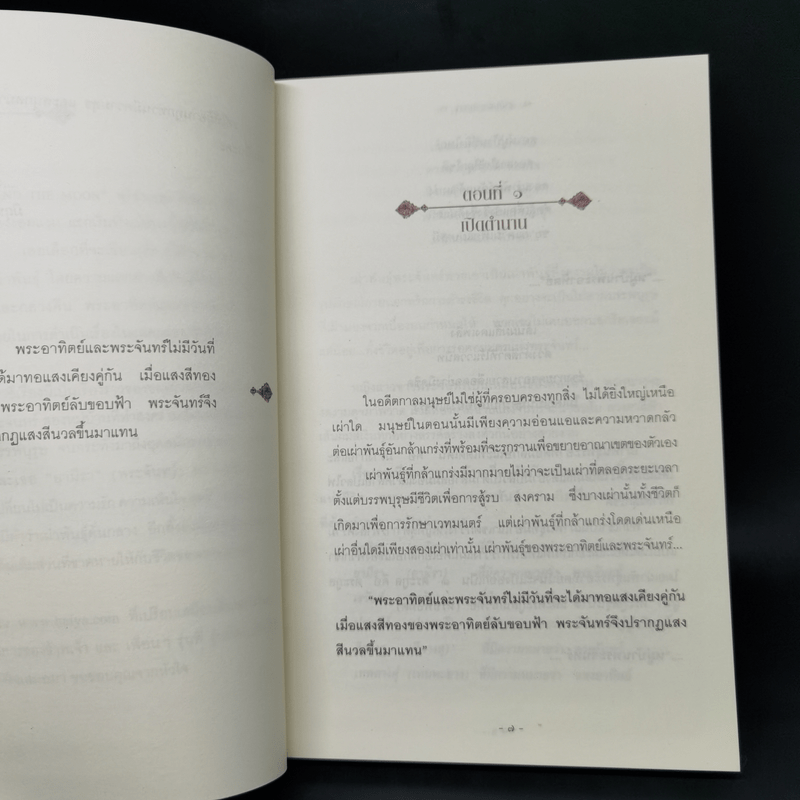 พระอาทิตย์และพระจันทร์ไม่มีวันที่
ได้มาทอแสงเคียงคู่กัน เมื่อแสงสีทอง
พระอาทิตย์ลับขอบฟ้า พระจันทร์จึง
ปรากฏแสงสีนวลขึ้นมาแทน
ตอนที่ ๑
เปิดตำนาน
ในอดีตกาลมนุษย์ไม่ใช่ผู้ที่ครอบครองทุกสิ่ง ไม่ได้ยิ่งใหญ่เหนือ
เผ่าใด มนุษย์ในตอนนั้นมีเพียงความอ่อนแอและความหวาดกลัว
ต่อเผ่าพันธุ์อันกล้าแกร่งที่พร้อมที่จะรุกรานเพื่อขยายอาณาเขตของตัวเอง
เผ่าพันธุ์ที่กล้าแกร่งมีมากมายไม่ว่าจะเป็นเผ่าที่ตลอดระยะเวลา
ตั้งแต่บรรพบุรุษมีชีวิตเพื่อการสู้รบ สงคราม ซึ่งบางเผ่านั้นทั้งชีวิตก็
เกิดมาเพื่อการรักษาเวทมนตร์ แต่เผ่าพันธุ์ที่กล้าแกร่งโดดเด่นเหนือ
เผ่าอื่นใดมีเพียงสองเผ่าเท่านั้น เผ่าพันธุ์ของพระอาทิตย์และพระจันทร์...
"พระอาทิตย์และพระจันทร์ไม่มีวันที่จะได้มาทอแสงเคียงคู่กัน
เมื่อแสงสีทองของพระอาทิตย์ลับขอบฟ้า พระจันทร์จึงปรากฏแสง
สีนวลขึ้นมาแทน"
- ๗ -